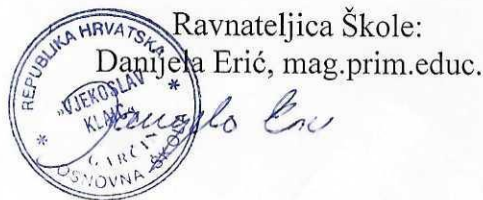 Ravnateljica Škole:
Danijela Erić, mag.prim.educ.
REPUBLIKA HRVATSKA
"VJEKOSLAV
KLAIĆ"
GARČIN
OSNOVNA ŠKOLA
Danijela Erić